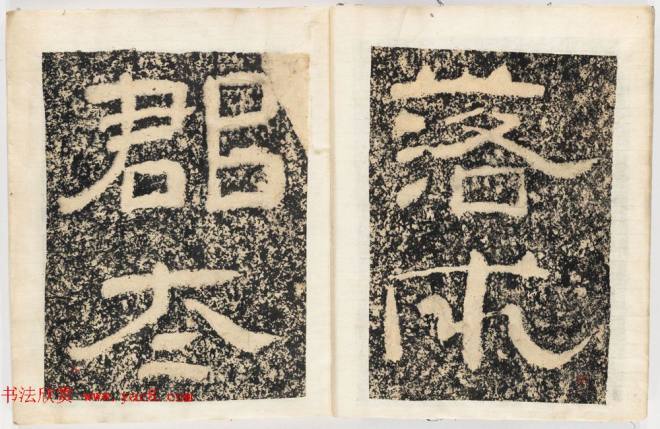 落
郡
夳
书法欣赏 www.yac8.com